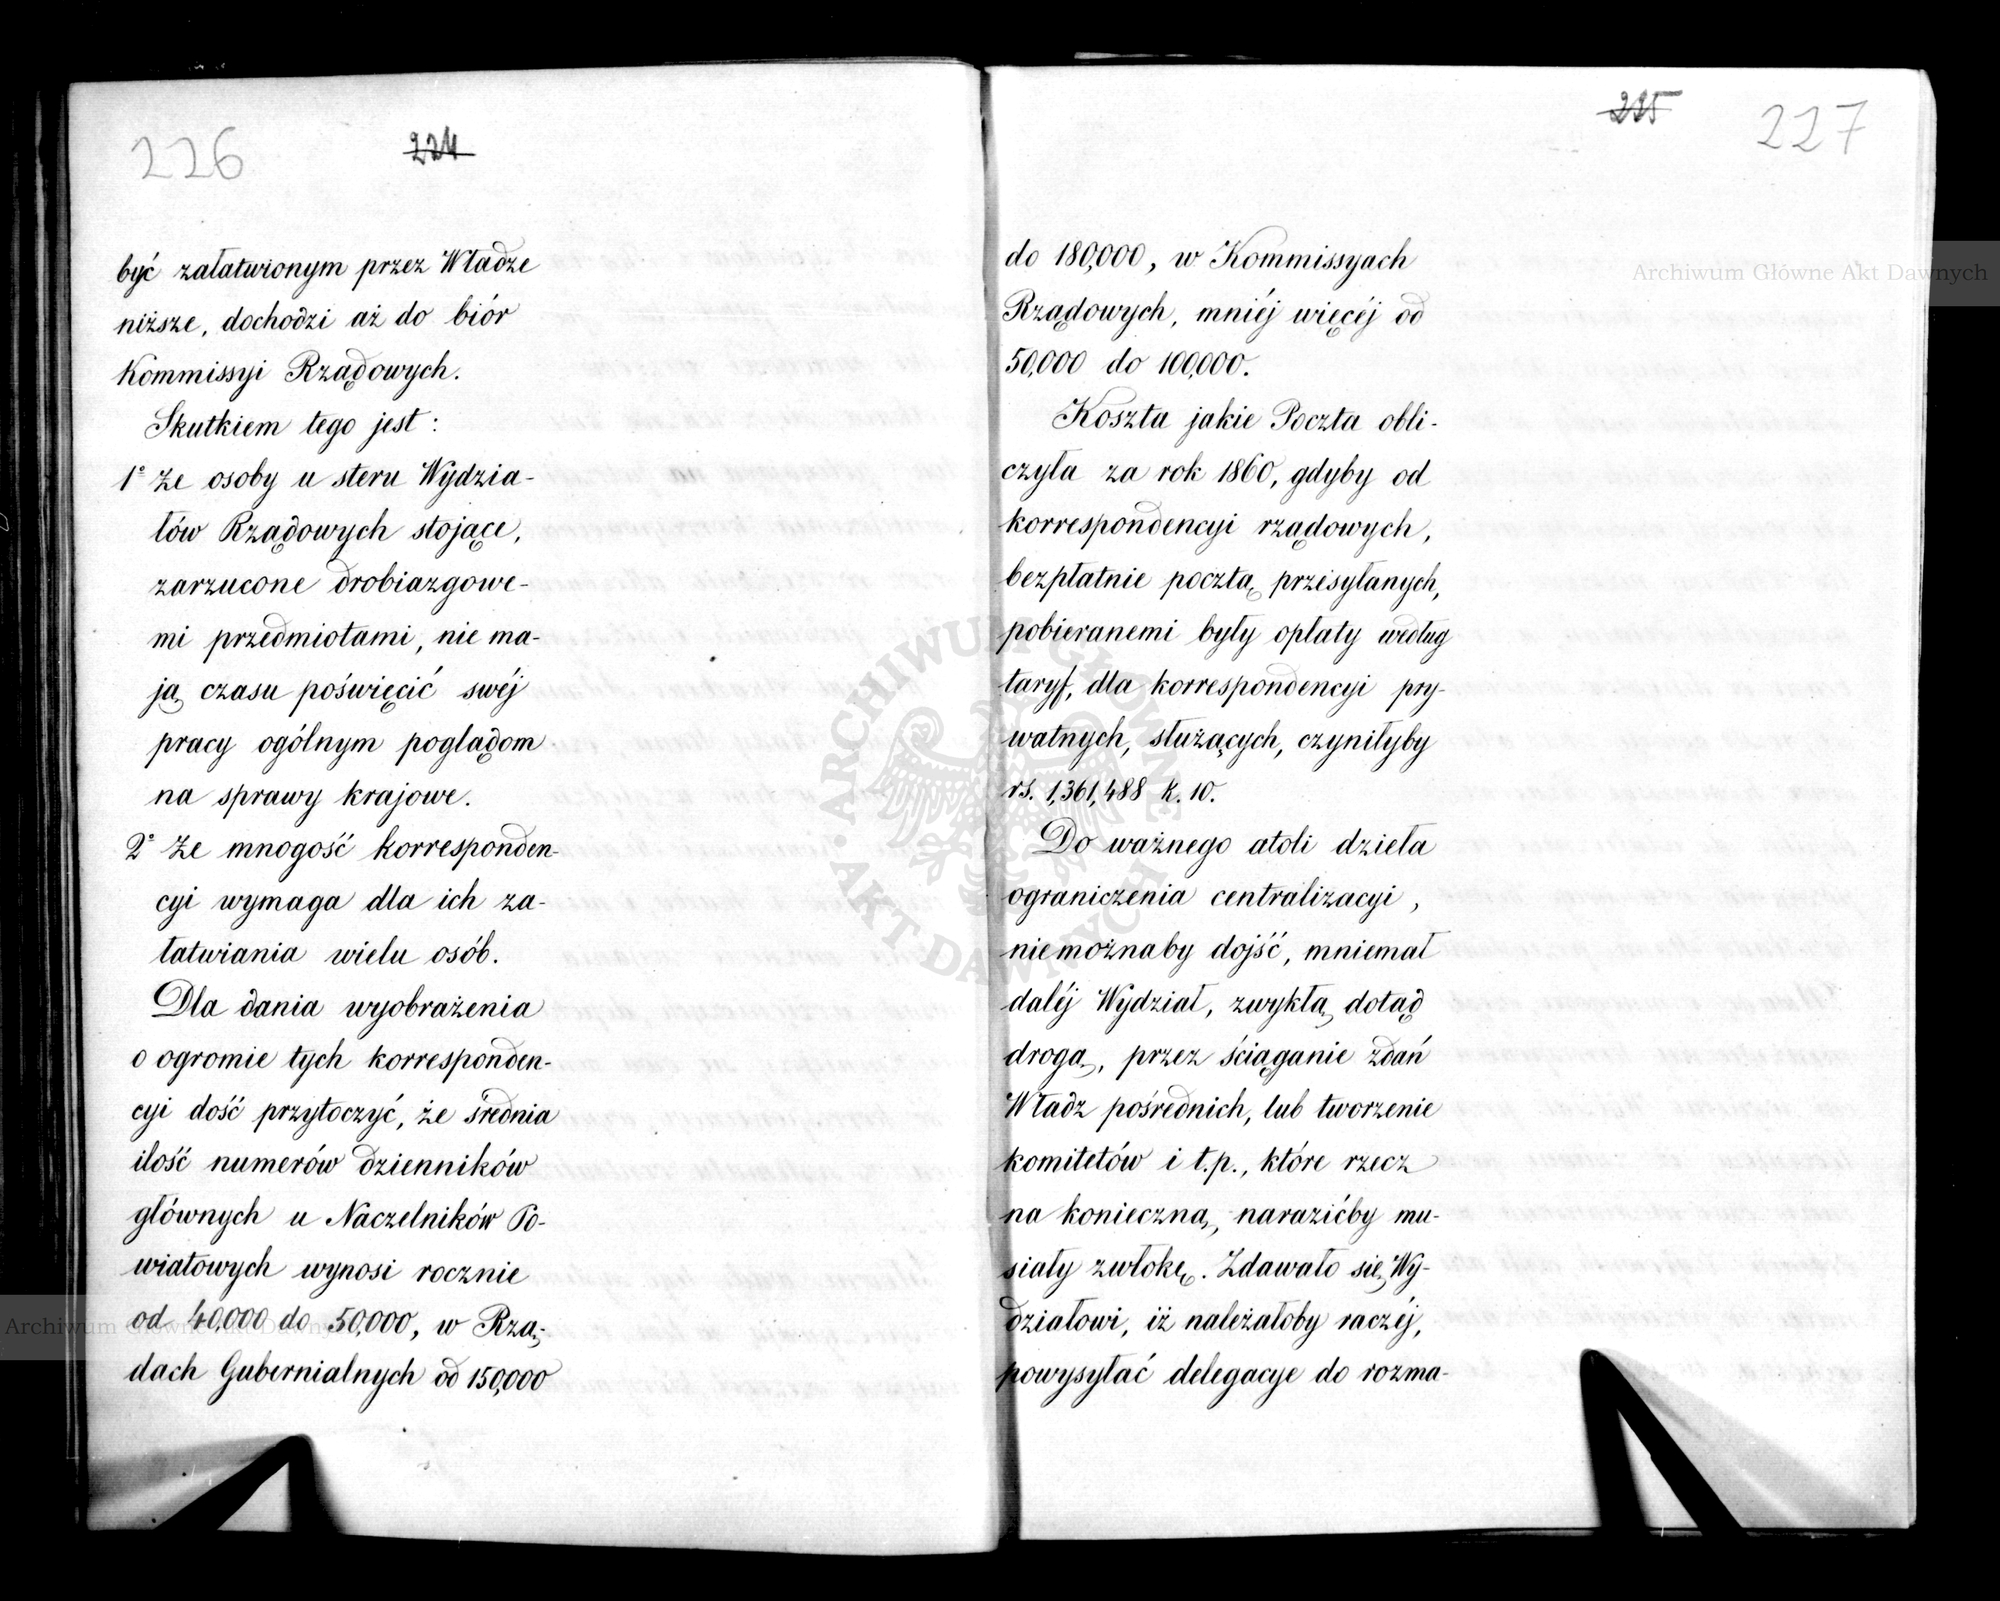 226
224
być załatwionym przez Władze
niższe, dochodzi aż do biór
Kommissyi Rządowych.
Skutkiem tego jest :
1° Że osoby u steru Wydzia-
łów Rządowych stojące,
zarzucone drobiazgowe-
mi przedmiotami, nie ma-
ją czasu poświęcić swéj
pracy ogólnym poglądom
na sprawy krajowe.
2° Że mnogość korresponden-
cyi wymaga dla ich za-
łatwiania wielu osób.
Dla dania wyobrażenia
o ogromie tych korresponden-
cyi dość przytoczyć, że średnia
ilość numerów dzienników
głównych u Naczelników Po-
wiatowych wynosi rocznie
od 40,000 do 50,000, w Rzą-
dach Gubernialnych od 150,000
225
227
do 180,000, w Kommissyach
Rządowych, mniéj więcéj od
50,000 do 100,000.
Koszta jakie Poczta obli-
czyła za rok 1860, gdyby od
korrespondencyi rządowych,
bezpłatnie pocztą przesyłanych,
pobieranemi były opłaty według
taryf, dla korrespondencyi pry-
watnych, służących, czyniłyby
rs. 1,361,488 k. 10.
Do ważnego atoli dzieła
ograniczenia centralizacyi,
niemożnaby dojść, mniemał
daléj Wydział, zwykłą dotąd
drogą, przez ściąganie zdań
Władz pośrednich, lub tworzenie
komitetów i t.p., które rzecz
na konieczną, narazićby mu-
siały zwłokę. Zdawało się Wy-
działowi, iż należałoby raczéj,
powysyłać delegacye do rozma-
Archiwum Główne Akt Dawnych
Archiwum Główne Akt Dawnych
ARCHIWUM GŁÓWNE AKT DAWNYCH